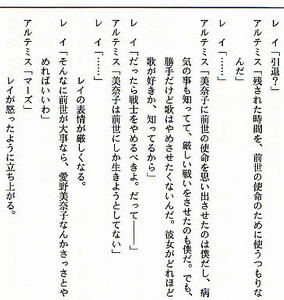 レイ「引退?」
アルテミス「残された時間を、前世の使命のために使うつもりな
んだ」
レイ「……」
アルテミス「美奈子に前世の使命を思い出させたのは僕だし、病
気の事も知ってて、厳しい戦いをさせたのも僕だ。でも、
勝手だけど歌はやめさせたくないんだ。彼女がどれほど
歌が好きか、知ってるから」
レイ「だったら戦士をやめるべきよ。だって――」
アルテミス「美奈は前世にしか生きようとしてない」
レイ「……」
レイの表情が厳しくなる。
レイ「そんなに前世が大事なら、愛野美奈子なんかさっさとや
めればいいわ」
アルテミス「マーズ」
レイが怒ったように立ち上がる。